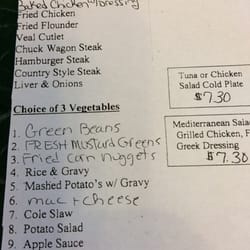 Baked Chicken w/Dressing
Fried Chicken
Fried Flounder
Veal Cutlet
Chuck Wagon Steak
Hamburger Steak
Country Style Steak
Liver & Onions
Tuna or Chicken
Salad Cold Plate
$7.30
Choice of 3 Vegetables
1. Green Beans
2. FRESH Mustard Greens
3. Fried corn nuggets
4. Rice & Gravy
5. Mashed Potato's w/ Gravy
6. mac + cheese
7. Cole Slaw
8. Potato Salad
9. Apple Sauce
Mediterranean Sala
Grilled Chicken, F
Greek Dressing
$7.30